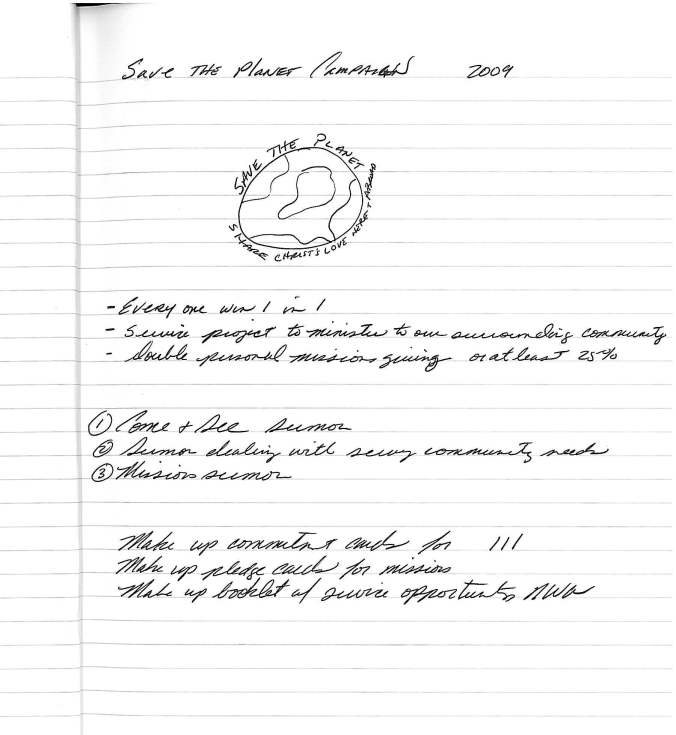 Save THE PlaNET CAMPAIGN 2009
SAVE THE PLANET
SHARE CHRIST'S LOVE HERE + ABROAD
- Every one win 1 in 1
- Service project to minister to our surrounding community
- double personal missions giving or at least 25%
① Come + See sermon
② Sermon dealing with community needs
③ Missions sermon
Make up commitment cards for 111
Make up pledge cards for missions
Make up booklet w/ service opportunities NWA